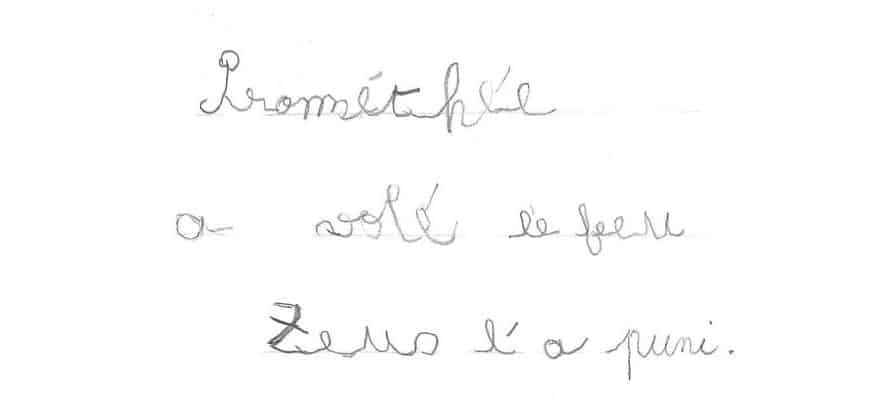 Prométhée
a volé le feu
Zeus l'a puni.